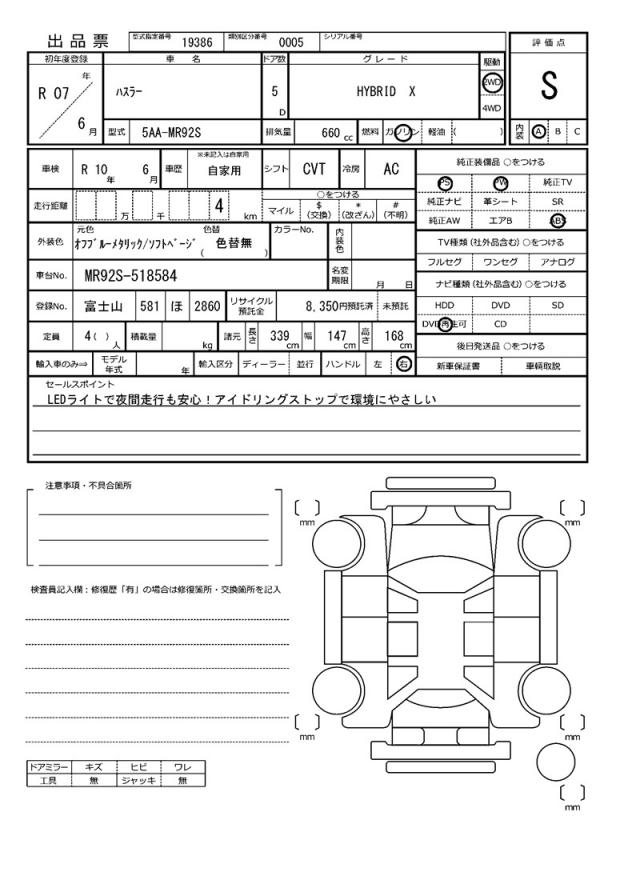 出品票 型式指定番号 19386 類別区分番号 0005 シリアル番号
評価点
初年度登録 車名 ドア数 グレード 駆動
R 07 年 6 月 ハスラー 5 D HYBRID X 2WD 4WD
S
型式 5AA-MR92S 排気量 660 cc 燃料 ガソリン 軽油 ( )
内装 A B C
車検 R 10 年 6 月 車歴 ※未記入は自家用 自家用 シフト CVT 冷房 AC
純正装備品 ○をつける
PS PW 純正TV
純正ナビ 革シート SR
純正AW エアB ABS
走行距離 万 千 4 km
○をつける
マイル $ (交換) * (改ざん) # (不明)
TV種類 (社外品含む) ○をつける
フルセグ ワンセグ アナログ
外装色 元色 オフブルーメタリック/ソフトベージ 色替 ( 色替無 ) カラーNo. 内装色
車台No. MR92S-518584 名変期限 月 日
ナビ種類 (社外品含む) ○をつける
HDD DVD SD
DVD再生可 CD
登録No. 富士山 581 ほ 2860 リサイクル預託金 8,350円預託済 未預託
定員 4 ( ) 人 積載量 kg 諸元 長さ 339 cm 幅 147 cm 高さ 168 cm
後日発送品 ○をつける
新車保証書 車輌取説
輸入車のみ⇒ モデル年式 年 輸入区分 ディーラー 並行 ハンドル 左 右
セールスポイント
LEDライトで夜間走行も安心！アイドリングストップで環境にやさしい
注意事項・不具合箇所
検査員記入欄：修復歴「有」の場合は修復箇所・交換箇所を記入
mm
mm
mm
mm
mm
ドアミラー キズ ヒビ ワレ
工具 無 ジャッキ 無